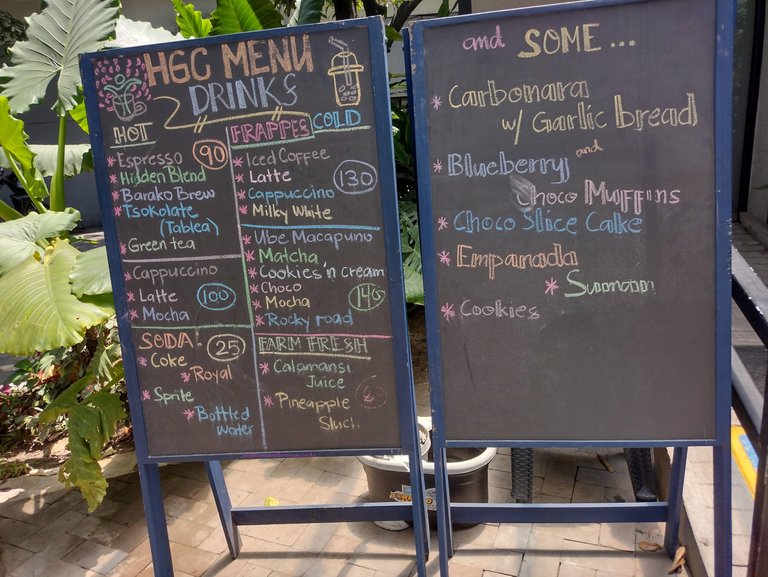 HGC MENU
DRINKS
HOT
* Espresso
* Hidden Blend
* Barako Brew
* Tsokolate
(Tablea)
* Green tea
90
* Cappuccino
* Latte
* Mocha
100
SODA
* Coke
* Royal
* Sprite
* Bottled
water
25
FRAPPES COLD
* Iced Coffee
* Latte
* Cappuccino
* Milky White
130
* Ube Macapuno
* Matcha
* Cookies 'n cream
* Choco
* Mocha
* Rocky road
140
FARM FRESH
* Calamansi
Juice
* Pineapple
and SOME ...
* Carbonara
w/ Garlic bread
* Blueberry and
Choco Muffins
* Choco Slice Cake
* Empanada
* Sumoon
* Cookies